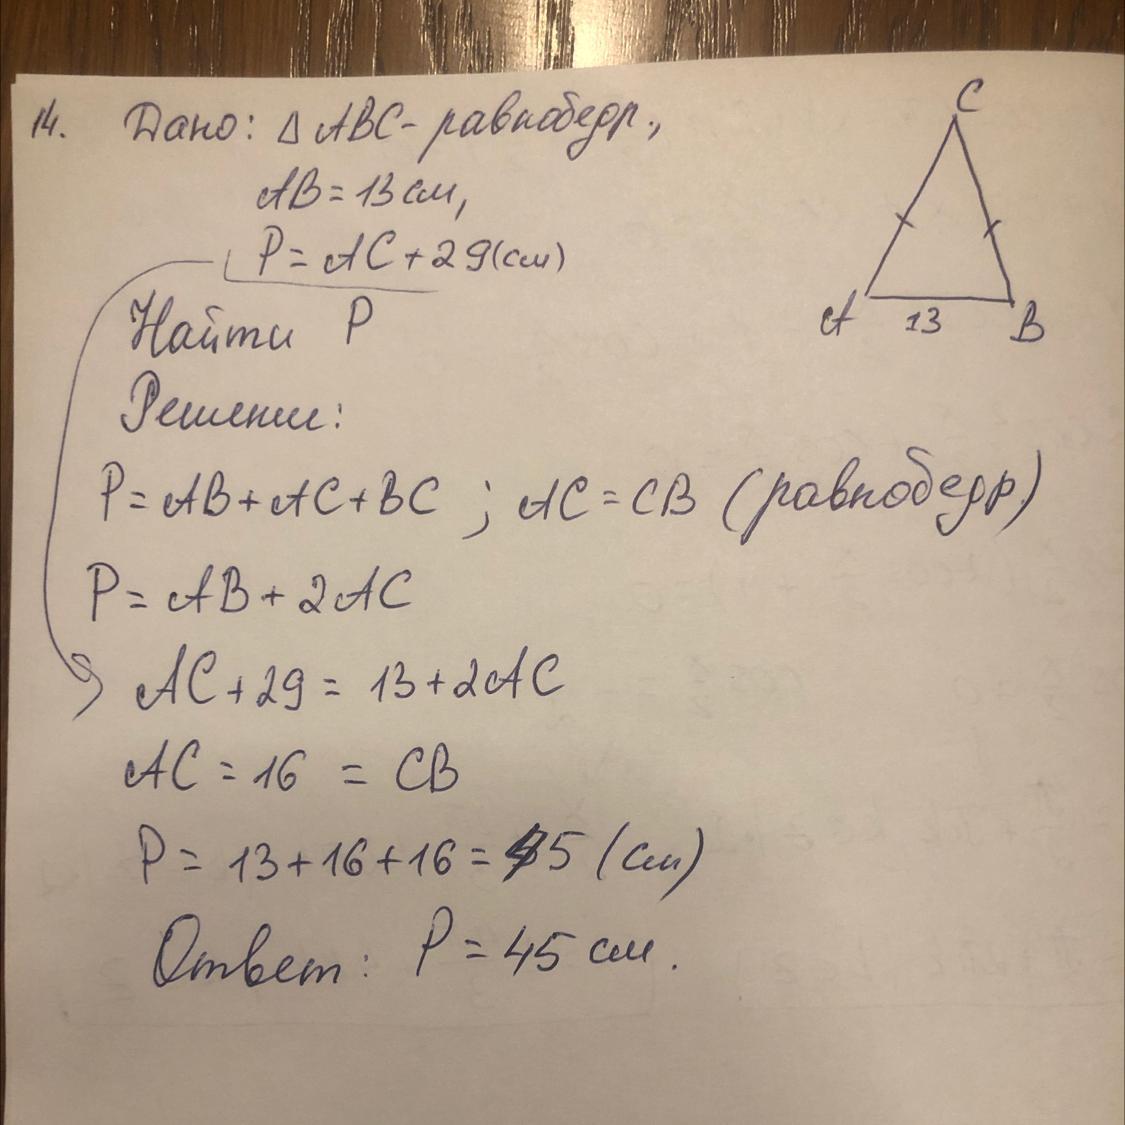 14. Дано: Δ ABC - равнобедр.,
AB = 13 см,
P = AC + 29 (см)
Найти P
Решение:
P = AB + AC + BC ; AC = CB (равнобедр)
P = AB + 2AC
AC + 29 = 13 + 2AC
AC = 16 = CB
P = 13 + 16 + 16 = 45 (см)
Ответ: P = 45 см.
C
A 13 B